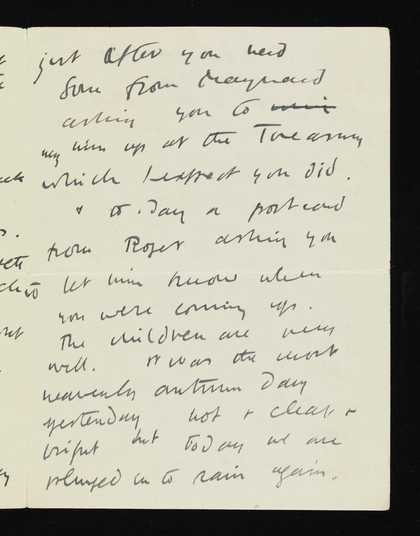 just after you had
gone from Maynard
asking you to
ring him up at the Treasury
which I expect you did.
& to-day a postcard
from Roger asking you
to let him know when
you were coming up.
The children are very
well. It was the most
heavenly autumn day
yesterday hot & clear &
bright but today we are
plunged in to rain again.